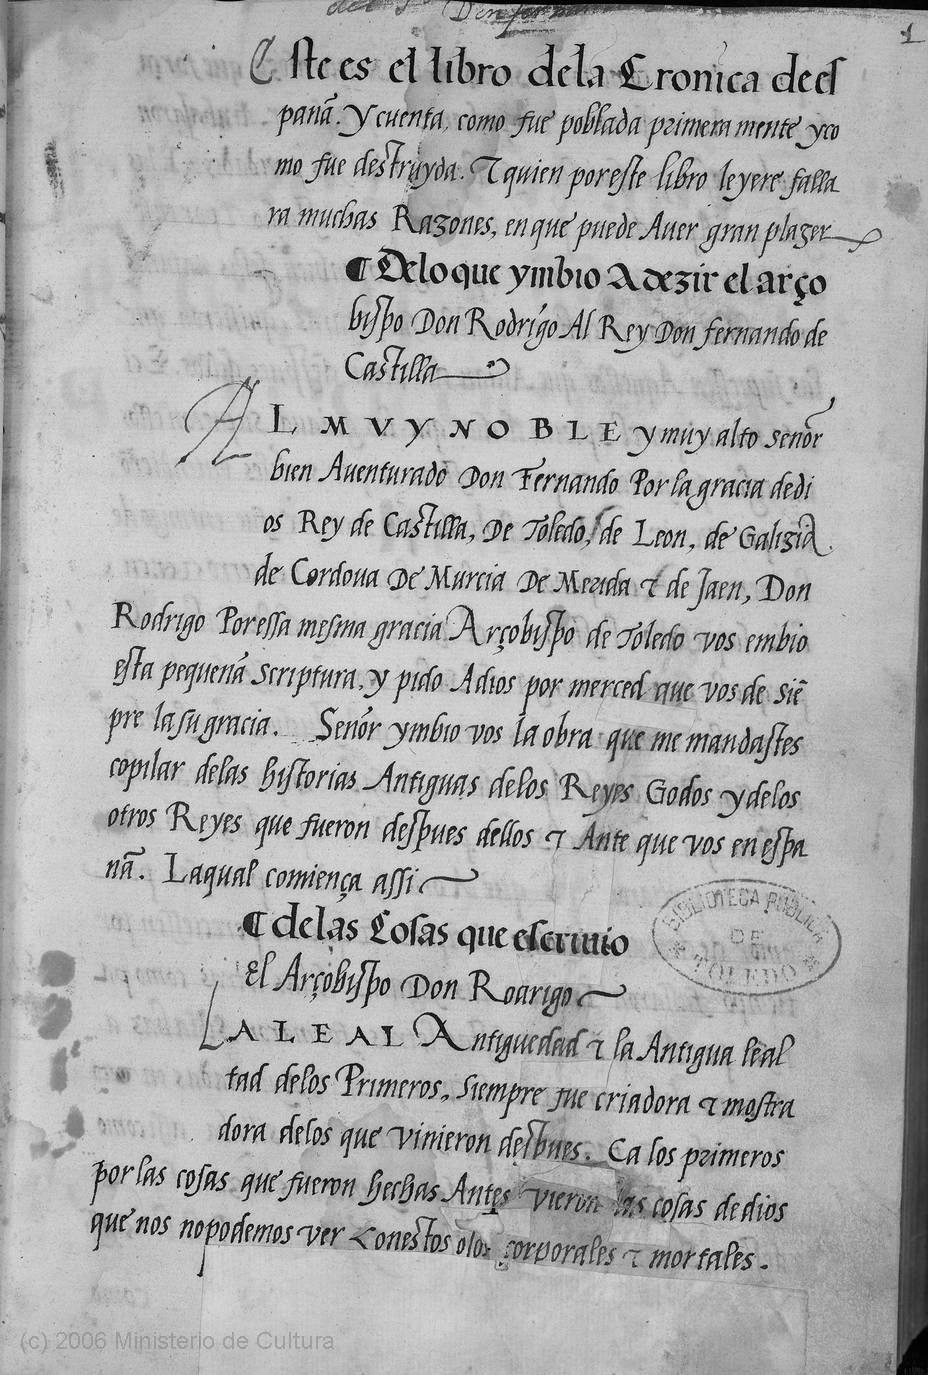 1
Este es el libro dela Cronica de es
paña. Y cuenta, como fue poblada primera mente y co
mo fue destruyda. τ quien por este libro leyere falla
ra muchas Razones, en que puede Auer gran plazer
¶ Delo que ymbio A dezir el arço
bispo Don Rodrigo Al Rey Don fernando de
Castilla
AL MVY NOBLE y muy alto señor
bien Auenturado Don Fernando Por la gracia de di
os Rey de Castilla, De Toledo, de Leon, de Galizia
de Cordoua De Murcia De Merida τ de Jaen, Don
Rodrigo Por essa mesma gracia Arçobispo de Toledo vos embio
esta pequeña scriptura, y pido A dios por merced que vos de siē
pre la su gracia. Señor ymbio vos la obra que me mandastes
copilar delas historias Antiguas delos Reyes Godos y delos
otros Reyes que fueron despues dellos τ Ante que vos en espa
ña. La qual comiença assi
¶ delas Cosas que escriuio
El Arçobispo Don Rodrigo
LA LEAL Antiguedad τ la Antigua leal
tad delos Primeros, siempre fue criadora τ mostra
dora delos que vinieron despues. Ca los primeros
por las cosas que fueron hechas Antes vieron las cosas de dios
que nos no podemos ver con estos ojos corporales τ mortales.
BIBLIOTECA PUBLICA
DE
TOLEDO
(c) 2006 Ministerio de Cultura